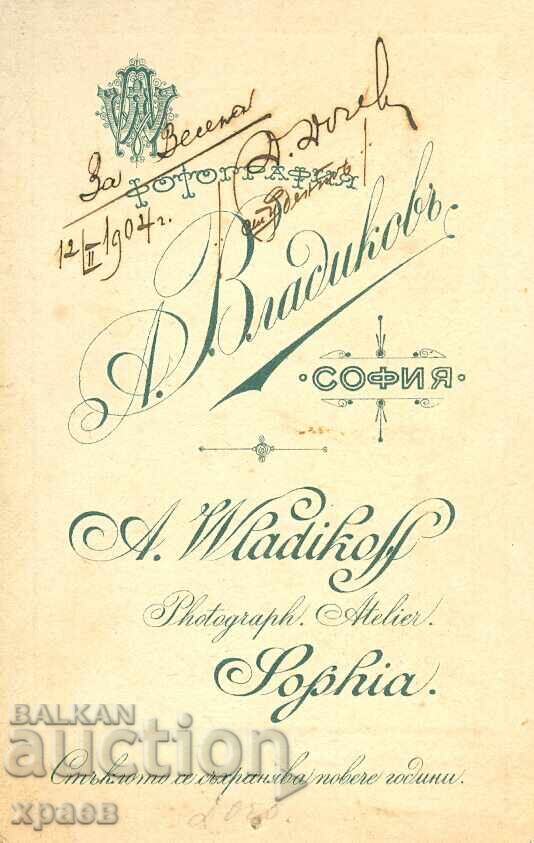 За Весела
12/II 1904 г.
Д. Дочев
студентъ
ФОТОГРАФИЯ
А. Владиковъ
• СОФИЯ •
A. Wladikoff
Photograph. Atelier.
Sophia.
BALKAN
auction
Стъклото се съхранява повече години.
храев